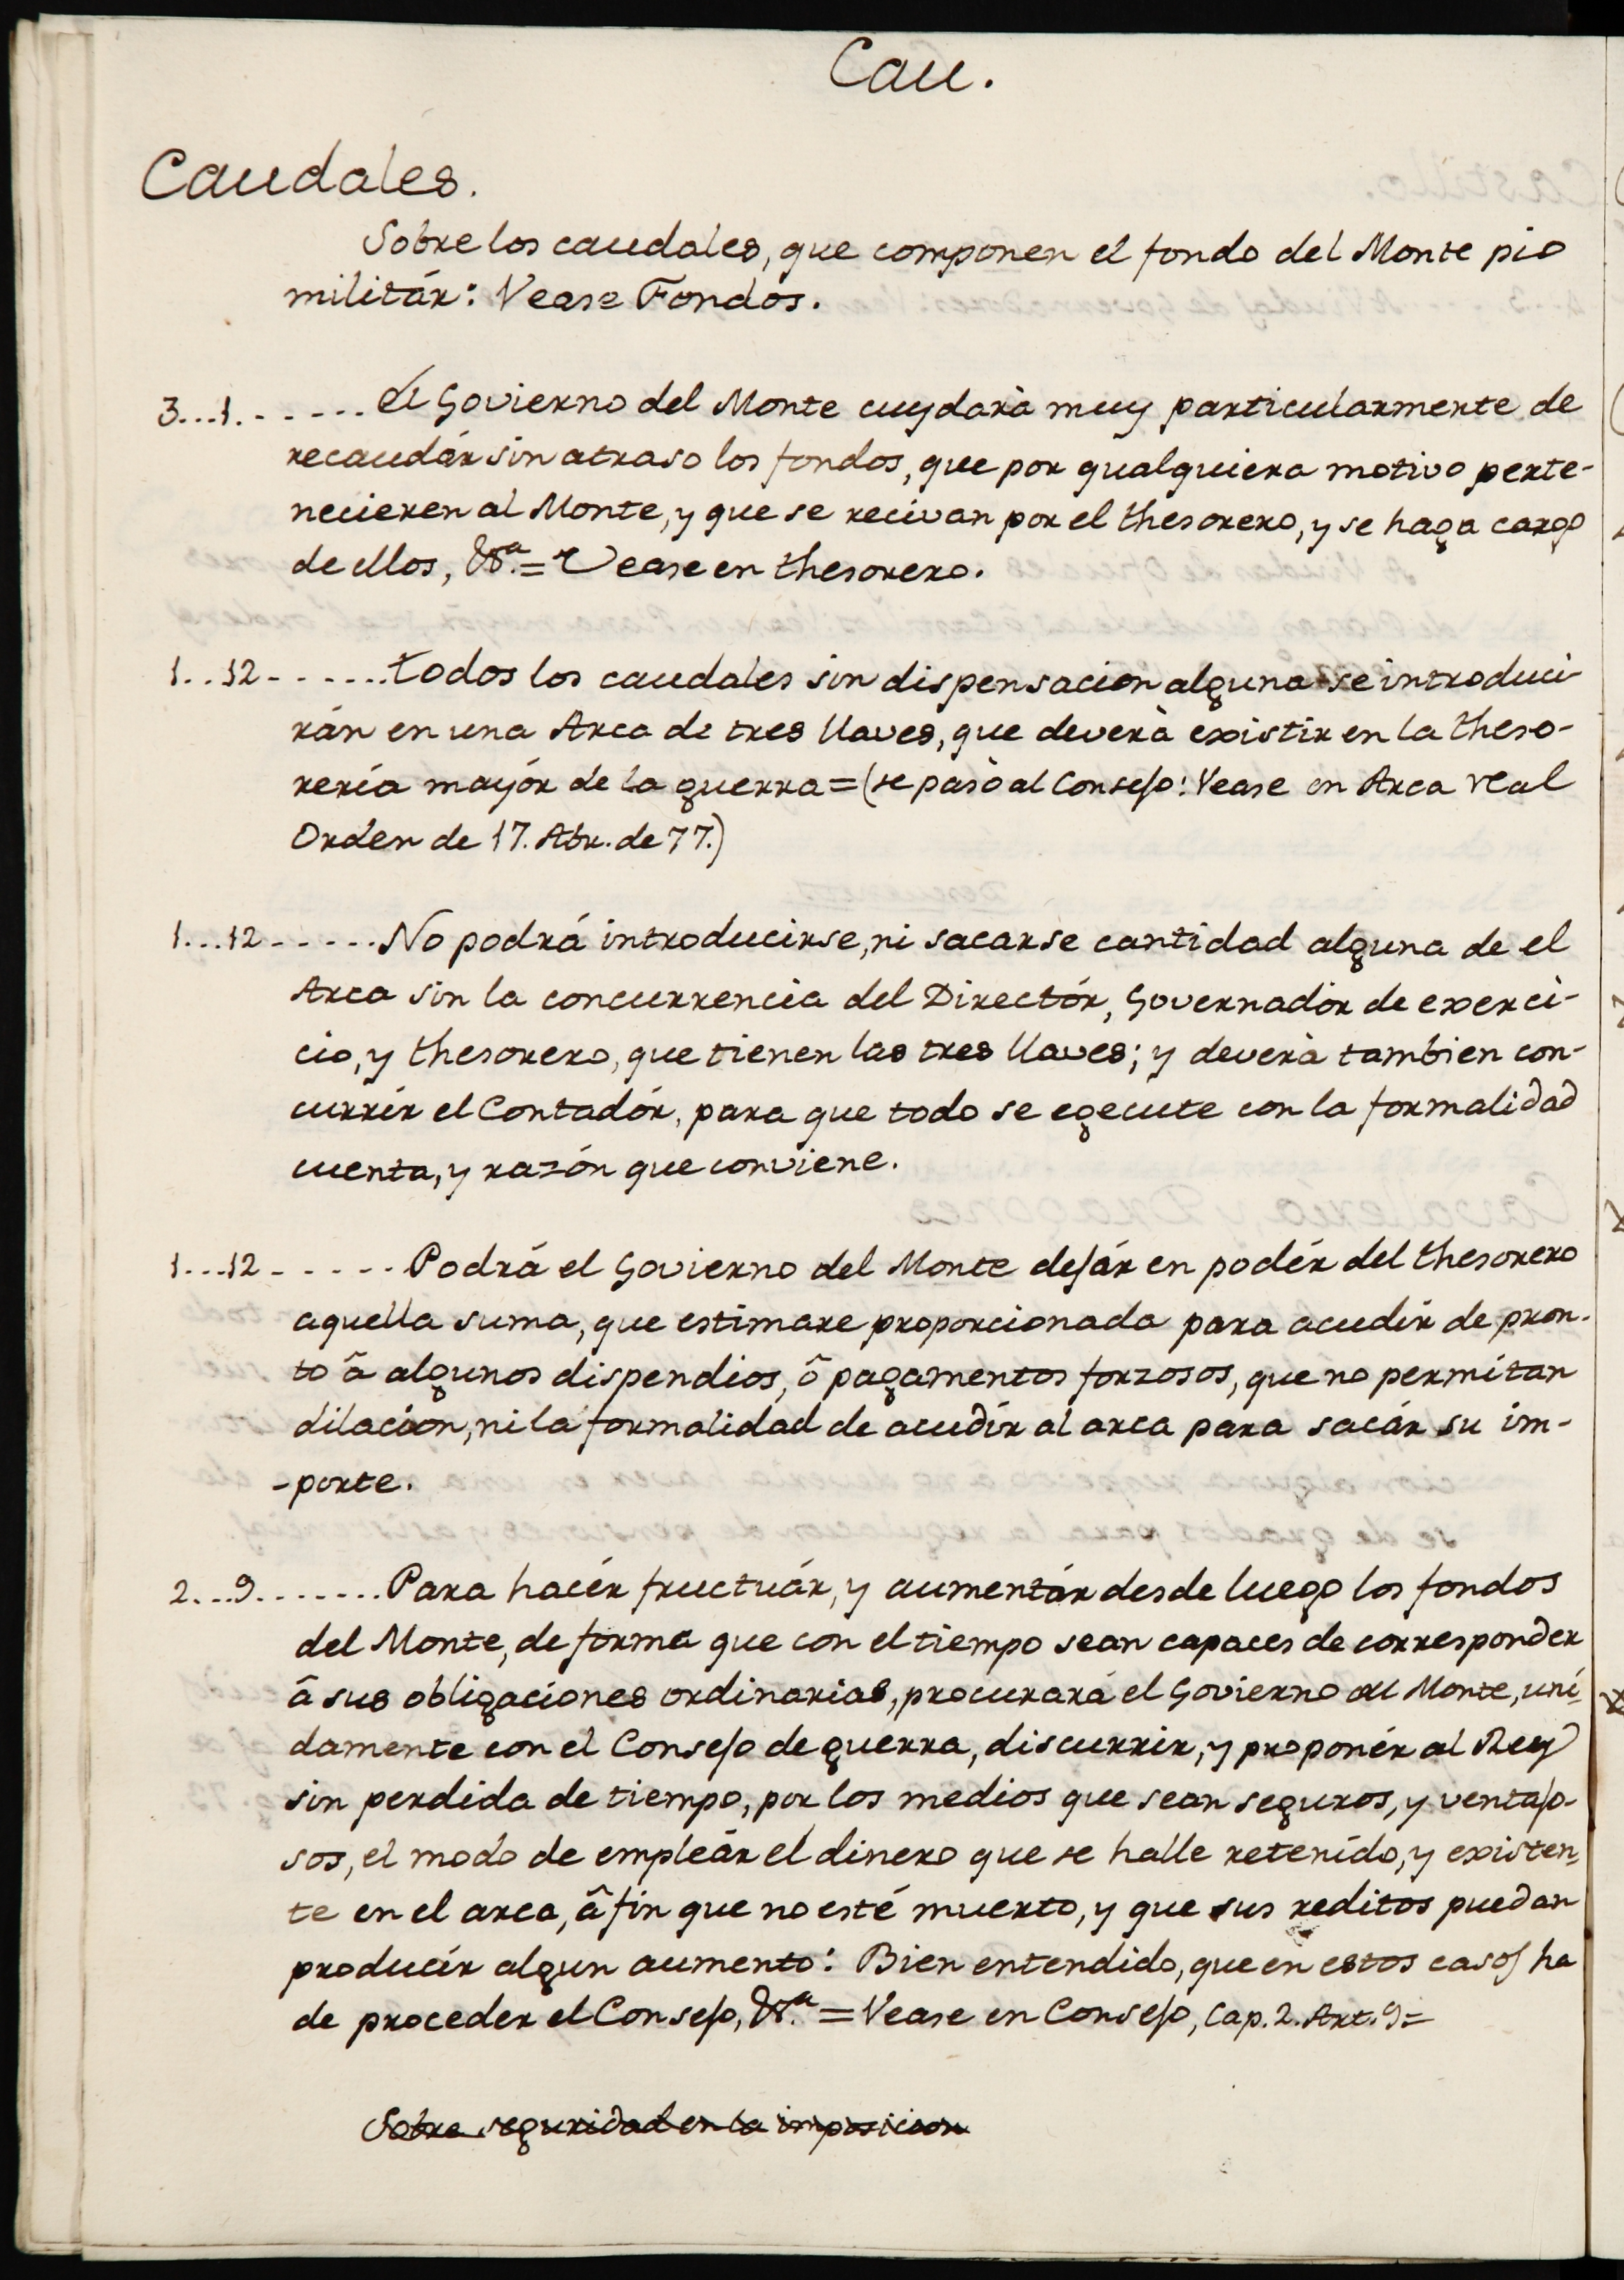 Cau.
Caudales.
Sobre los caudales, que componen el fondo del Monte pio
militár: Vease Fondos.
3...1. - - - - - ... el Govierno del Monte cuydarà muy particularmente de
recaudár sin atraso los fondos, que por qualquiera motivo perte-
necieren al Monte, y que se recivan por el thesorero, y se haga cargo
de ellos, &.ª = Vease en thesorero.
1...12 - - - - ... todos los caudales sin dispensacion alguna se introduci-
rán en una Arca de tres llaves, que deverà existir en la theso-
rería mayór de la guerra = (se pasò al Consejo: Vease en Arca real
Orden de 17. Abr. de 77.)
1...12 - - - - - ... No podrá introducirse, ni sacarse cantidad alguna de el
Arca sin la concurrencia del Directór, Governadór de exerci-
cio, y thesorero, que tienen las tres llaves; y deverà tambien con-
currír el Contadór, para que todo se egecute con la formalidad
cuenta, y razón que conviene.
1...12 - - - - - Podrá el Govierno del Monte dejár en podér del thesorero
aquella suma, que estimare proporcionada para acudír de pron-
to â algunos dispendios, ô pagamentos forzosos, que no permitan
dilación, ni la formalidad de acudír al arca para sacár su im-
-porte.
2...9. - - - - ... Para hacér fructuár, y aumentár desde luego los fondos
del Monte, de forma que con el tiempo sean capaces de corresponder
â sus obligaciones ordinarias, procurará el Govierno del Monte, uní-
damente con el Consejo de guerra, discurrir, y proponér al Rey
sin perdida de tiempo, por los medios que sean seguros, y ventajo-
sos, el modo de empleár el dinero que se halle retenído, y existen-
te en el arca, â fin que no esté muerto, y que sus reditos puedan
producír algun aumento: Bien entendido, que en estos casos ha
de proceder el Consejo, &.ª = Vease en Consejo, Cap. 2. Art. 9 =
Sobre seguridad en la imposicion